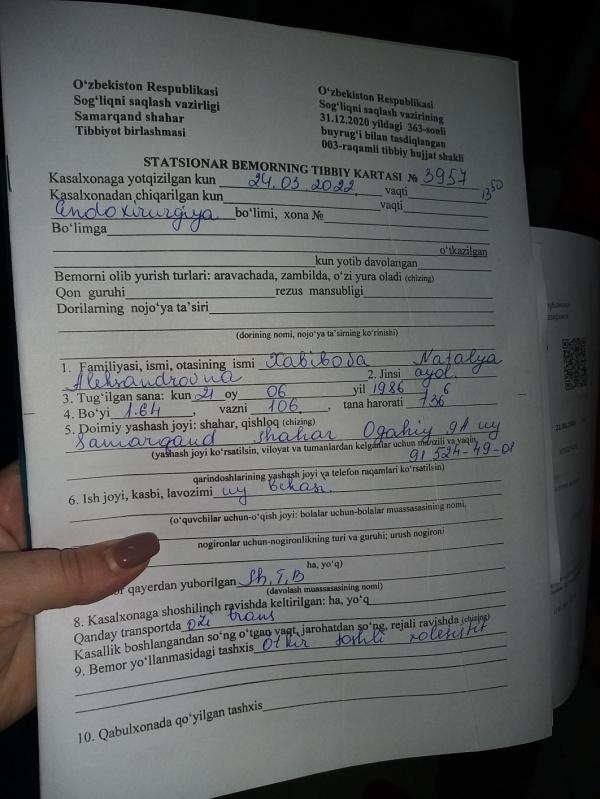 O‘zbekiston Respublikasi
Sog‘liqni saqlash vazirligi
Samarqand shahar
Tibbiyot birlashmasi
O‘zbekiston Respublikasi
Sog‘liqni saqlash vazirining
31.12.2020 yildagi 363-sonli
buyrug‘i bilan tasdiqlangan
003-raqamli tibbiy hujjat shakli
STATSIONAR BEMORNING TIBBIY KARTASI № 3957
Kasalxonaga yotqizilgan kun 24.03.2022 vaqti 13 50
Kasalxonadan chiqarilgan kun vaqti
Endoxirurgiya bo‘limi, xona №
Bo‘limga
o‘tkazilgan
kun yotib davolangan
Bemorni olib yurish turlari: aravachada, zambilda, o‘zi yura oladi (chizing)
Qon guruhi rezus mansubligi
Dorilarning nojo‘ya ta’siri
(dorining nomi, nojo‘ya ta’sirning ko‘rinishi)
1. Familiyasi, ismi, otasining ismi Xabibova Natalya
Aleksandrovna 2. Jinsi ayol.
3. Tug‘ilgan sana: kun 21 oy 06 yil 1986
4. Bo‘yi 1.64, vazni 106, tana harorati 36 6
5. Doimiy yashash joyi: shahar, qishloq (chizing)
Samarqand shahar Ogahiy 9A uy
(yashash joyi ko‘rsatsin, viloyat va tumanlardan kelganlar uchun manzili va yaqin
91 524-49-01
qarindoshlarining yashash joyi va telefon raqamlari ko‘rsatilsin)
6. Ish joyi, kasbi, lavozimi uy bekasi.
(o‘quvchilar uchun-o‘qish joyi: bolalar uchun-bolalar muassasasining nomi,
nogironlar uchun-nogironlikning turi va guruhi; urush nogironi
ha, yo‘q)
qayerdan yuborilgan Sh,T,B
(davolash muassasasining nomi)
8. Kasalxonaga shoshilinch ravishda keltirilgan: ha, yo‘q
Qanday transportda o‘zi trans
Kasallik boshlangandan so‘ng o‘tgan vaqt, jarohatdan so‘ng, rejali ravishda (chizing)
9. Bemor yo‘llanmasidagi tashxis O‘tkir toshli xoletsistit
10. Qabulxonada qo‘yilgan tashxis